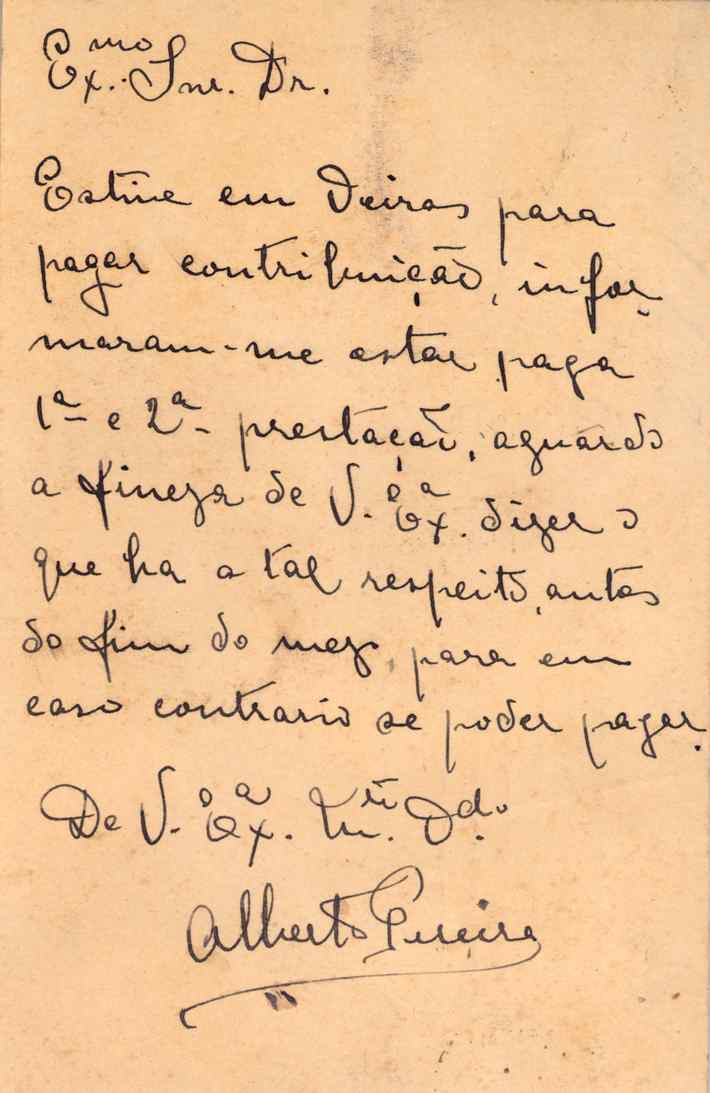 Ex.mo Snr. Dr.
Estive em Oeiras para
pagar contribuição, infor-
maram-me estar paga
1ª e 2ª prestação, aguardo
a fineza de V. Exª. dizer o
que ha a tal respeito, antes
do fim do mez, para em
caso contrario se poder pagar.
De V. Exª. Mtº. Obdº.
Alberto Pereira